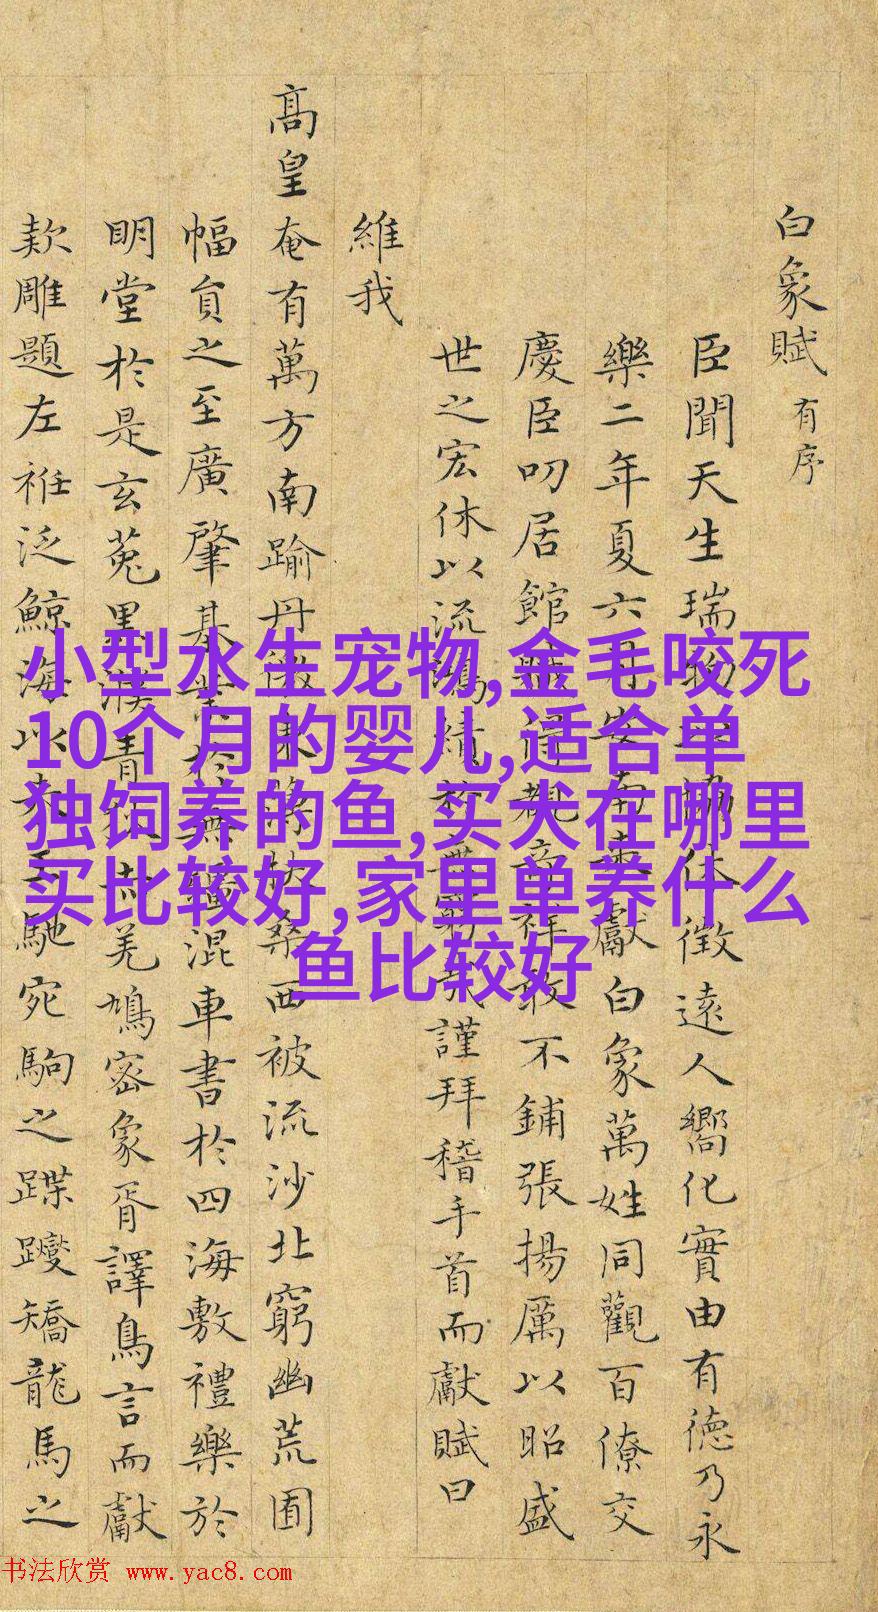 白象賦 有序
臣聞天生瑞物以協休徵遠人嚮化實由有德乃永
樂二年夏六月安南來獻白象萬姓同觀百僚交
慶臣叨居館職得觀奇祥敢不鋪張揚厲以昭盛
世之宏休以流鴻績於無窮哉謹拜稽手首而獻賦曰
維我
高皇奄有萬方南踰丹徼東薄扶桑西被流沙北窮幽荒圉
幅員之至廣肇基業於無疆混車書於四海敷禮樂於
明堂於是玄菟黑濮青赤羌鳩密象胥譯鳥言而獻
欵雕題左袵泛鯨海以來王馳宛駒之蹀躞矯龍馬之
小型水生宠物,金毛咬死
10个月的婴儿,适合单
独饲养的鱼,买犬在哪里
买比较好,家里单养什么
鱼比较好
书法欣赏 www.yac8.com